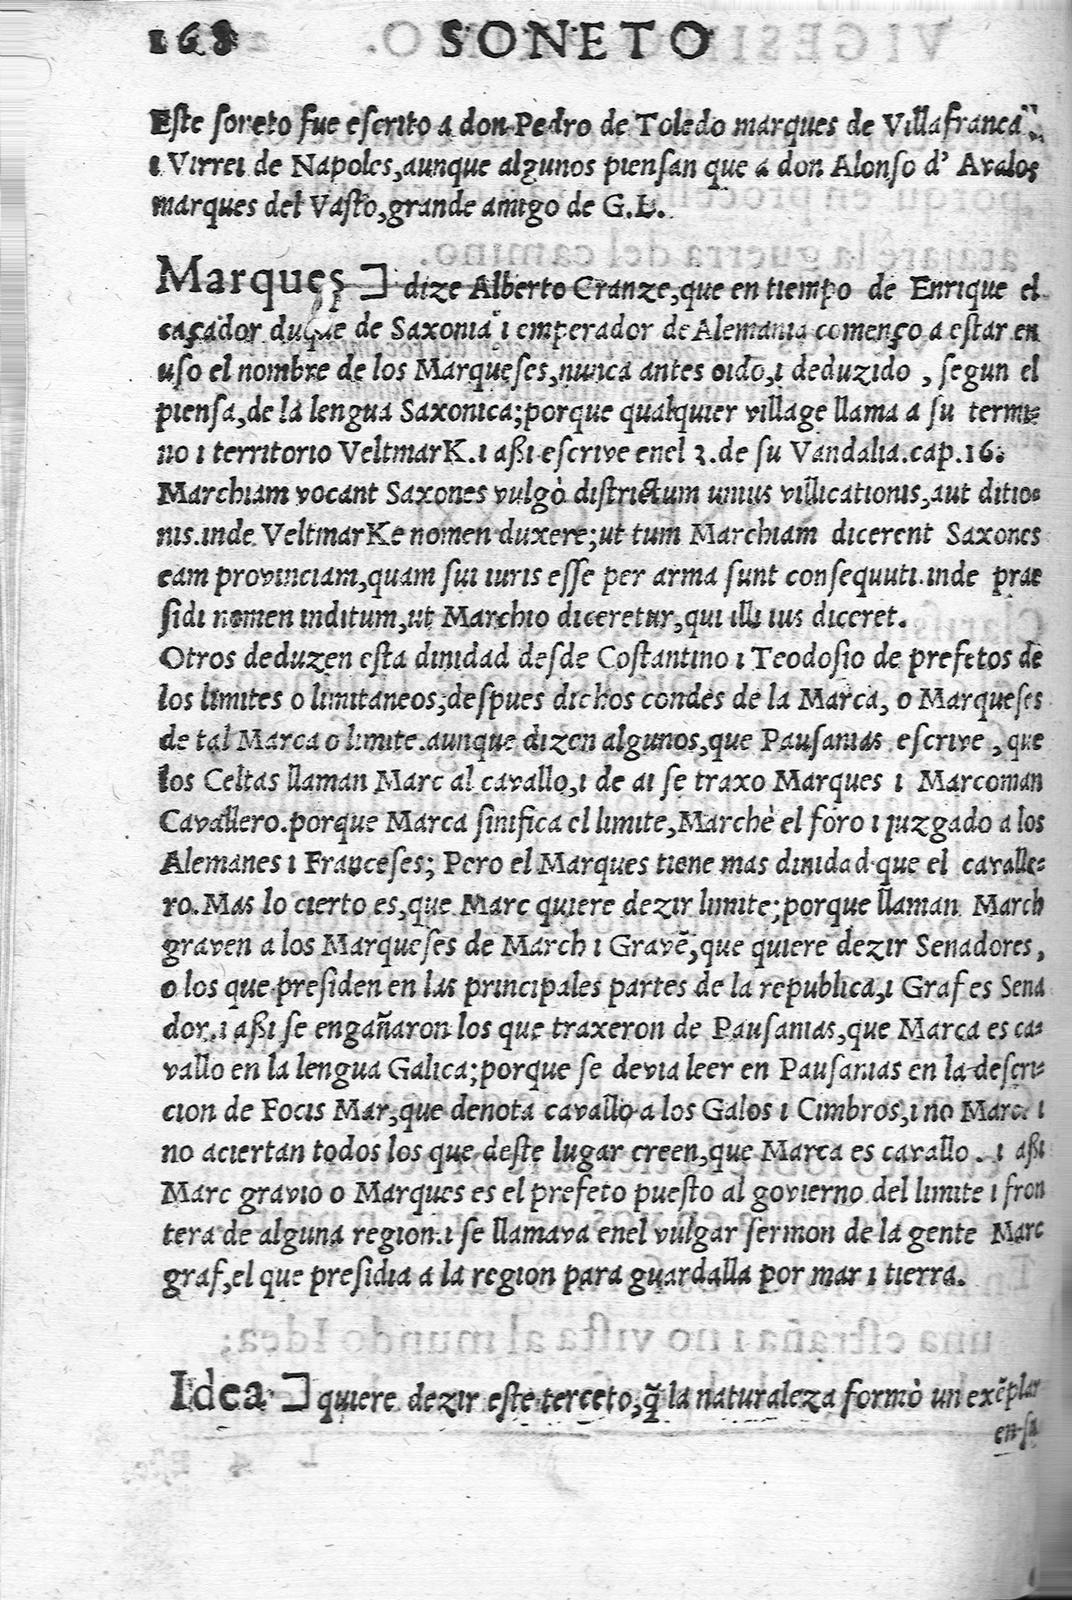 168 SONETO
Este soneto fue eſcrito a don Pedro de Toledo marques de Villafranca
i Virrei de Napoles,aunque algunos pienſan que a don Alonſo d' Avalos
marques del Vaſto,grande amigo de G.L.
Marques ⊐ dize Alberto Cranze,que en tiempo de Enrique el
caçador duque de Saxonia i emperador de Alemania començo a eſtar en
uſo el nombre de los Marqueſes,nunca antes oido,i deduzido , ſegun el
pienſa,de la lengua Saxonica;porque qualquier village llama a ſu termi-
no i territorio VeltmarK.i aßi eſcrive enel 3.de ſu Vandalia.cap.16.
Marchiam vocant Saxones vulgò diſtrictum unius villicationis,aut ditio-
nis.inde VeltmarKe nomen duxere;ut tum Marchiam dicerent Saxones
eam provinciam,quam ſui iuris eſſe per arma ſunt conſequuti.inde prae
ſidi nomen inditum,ut Marchio diceretur,qui illi ius diceret.
Otros deduzen eſta dinidad deſde Coſtantino i Teodoſio de prefetos de
los limites o limitaneos;deſpues dichos condes de la Marca, o Marqueſes
de tal Marca o limite.aunque dizen algunos,que Pauſanias eſcrive , que
los Celtas llaman Marc al cavallo,i de ai ſe traxo Marques i Marcoman
Cavallero.porque Marca ſinifica el limite,Marchè el foro i juzgado a los
Alemanes i Franceſes; Pero el Marques tiene mas dinidad que el cavalle-
ro.Mas lo cierto es,que Marc quiere dezir limite;porque llaman March
graven a los Marqueſes de March i Gravē,que quiere dezir Senadores,
o los que preſiden en las principales partes de la republica,i Graf es Sena
dor.i aßi ſe engañaron los que traxeron de Pauſanias,que Marca es ca-
vallo en la lengua Galica;porque ſe devia leer en Pauſanias en la deſcri-
cion de Focis Mar,que denota cavallo a los Galos i Cimbros,i no Marc. i
no aciertan todos los que deſte lugar creen,que Marca es cavallo . i aßi
Marc gravio o Marques es el prefeto pueſto al govierno del limite i fron
tera de alguna region.i ſe llamava enel vulgar ſermon de la gente Marc
graf,el que preſidia a la region para guardalla por mar i tierra.
Idea ⊐ quiere dezir eſte terceto,q̃ la naturaleza formò un exēplar
en ſu